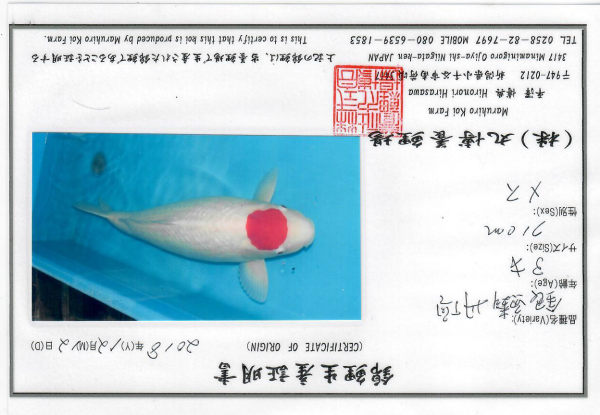 錦鯉生産証明書
(CERTIFICATE OF ORIGIN)
2018年(Y)12月(M)2日(D)
品種名(Variety):
銀鱗丹頂
年齢(Age):
3才
サイズ(Size):
71cm
性別(Sex):
メス
(株)丸博養鯉場
Maruhiro Koi Farm
平澤 博典 Hironori Hirasawa
〒947-0212 新潟県小千谷市南荷頃3417
3417 Minaminigoro Ojiya-shi Niigata-ken JAPAN
TEL 0258-82-7697 MOBILE 080-6539-1853
上記の錦鯉は、当養鯉場で生産された錦鯉であることを証明する
This is to certify that this koi is produced by Maruhiro Koi Farm.